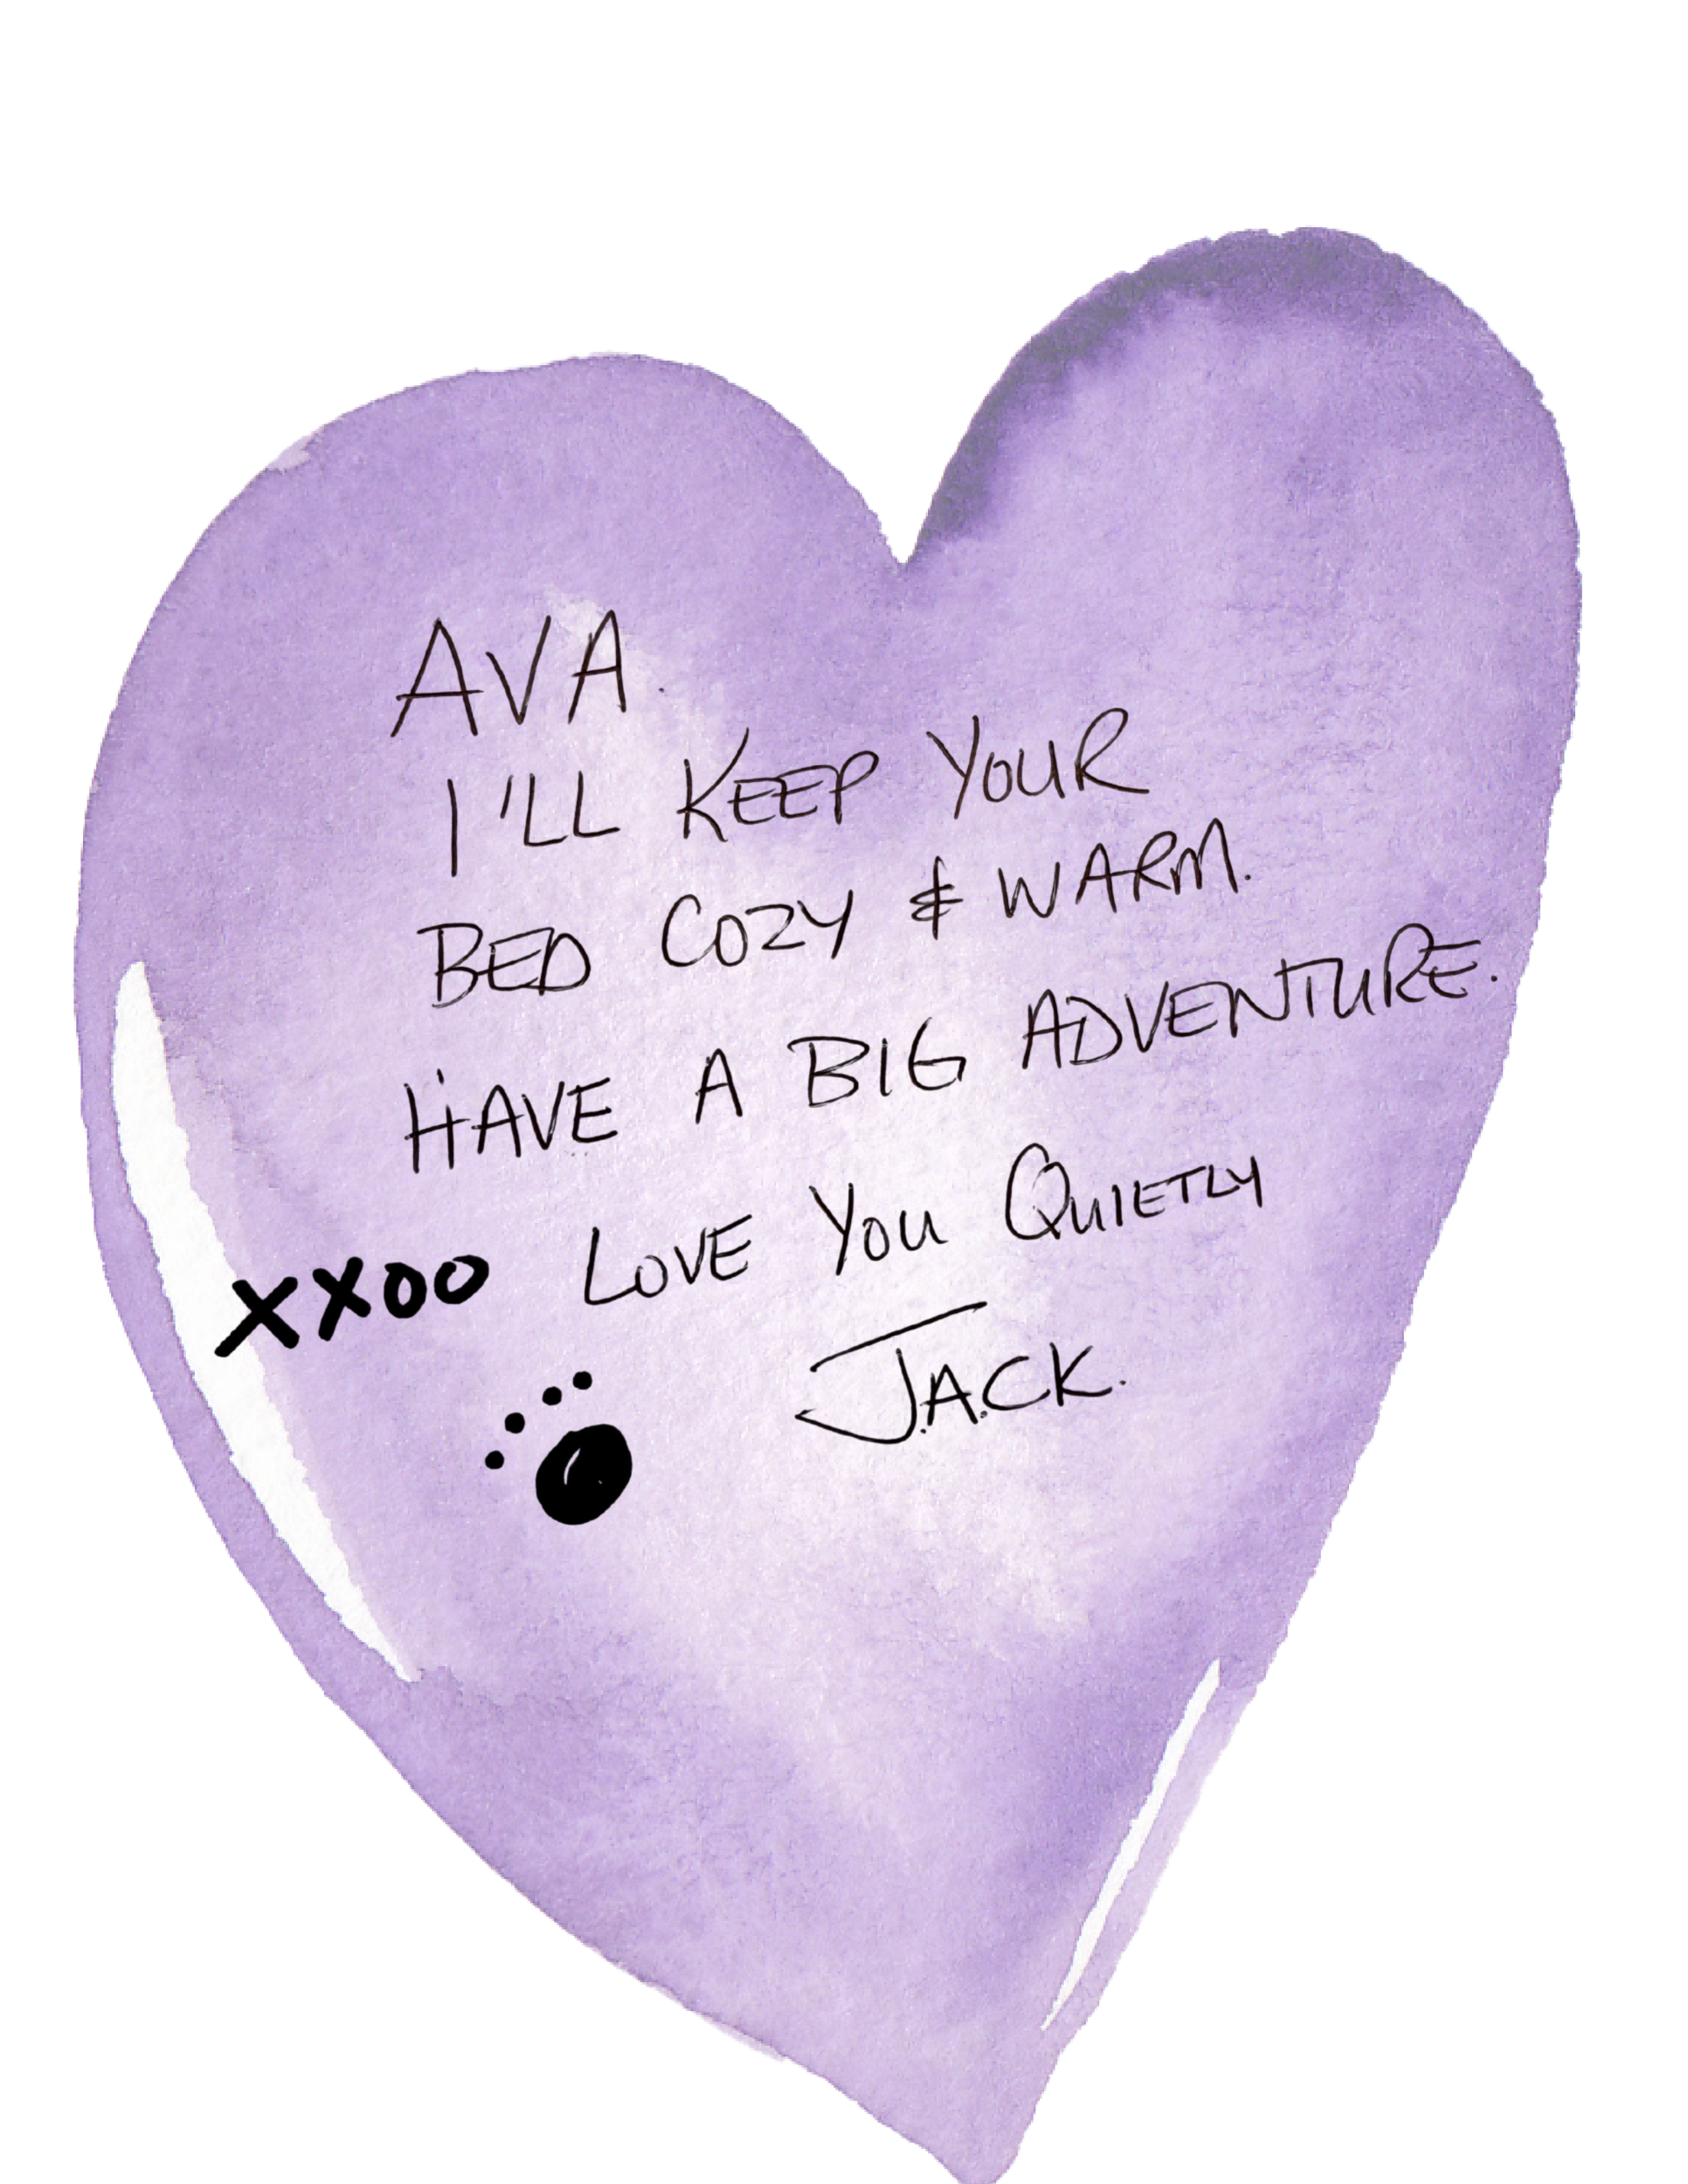 AVA.
I'LL KEEP YOUR
BED COZY & WARM.
HAVE A BIG ADVENTURE.
XXOO LOVE YOU QUIETLY
J.A.CK.